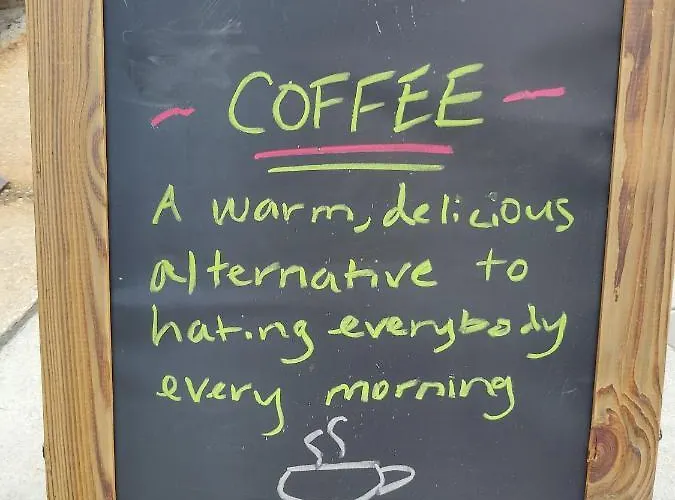 - COFFEE -
A warm, delicious
alternative to
hating everybody
every morning